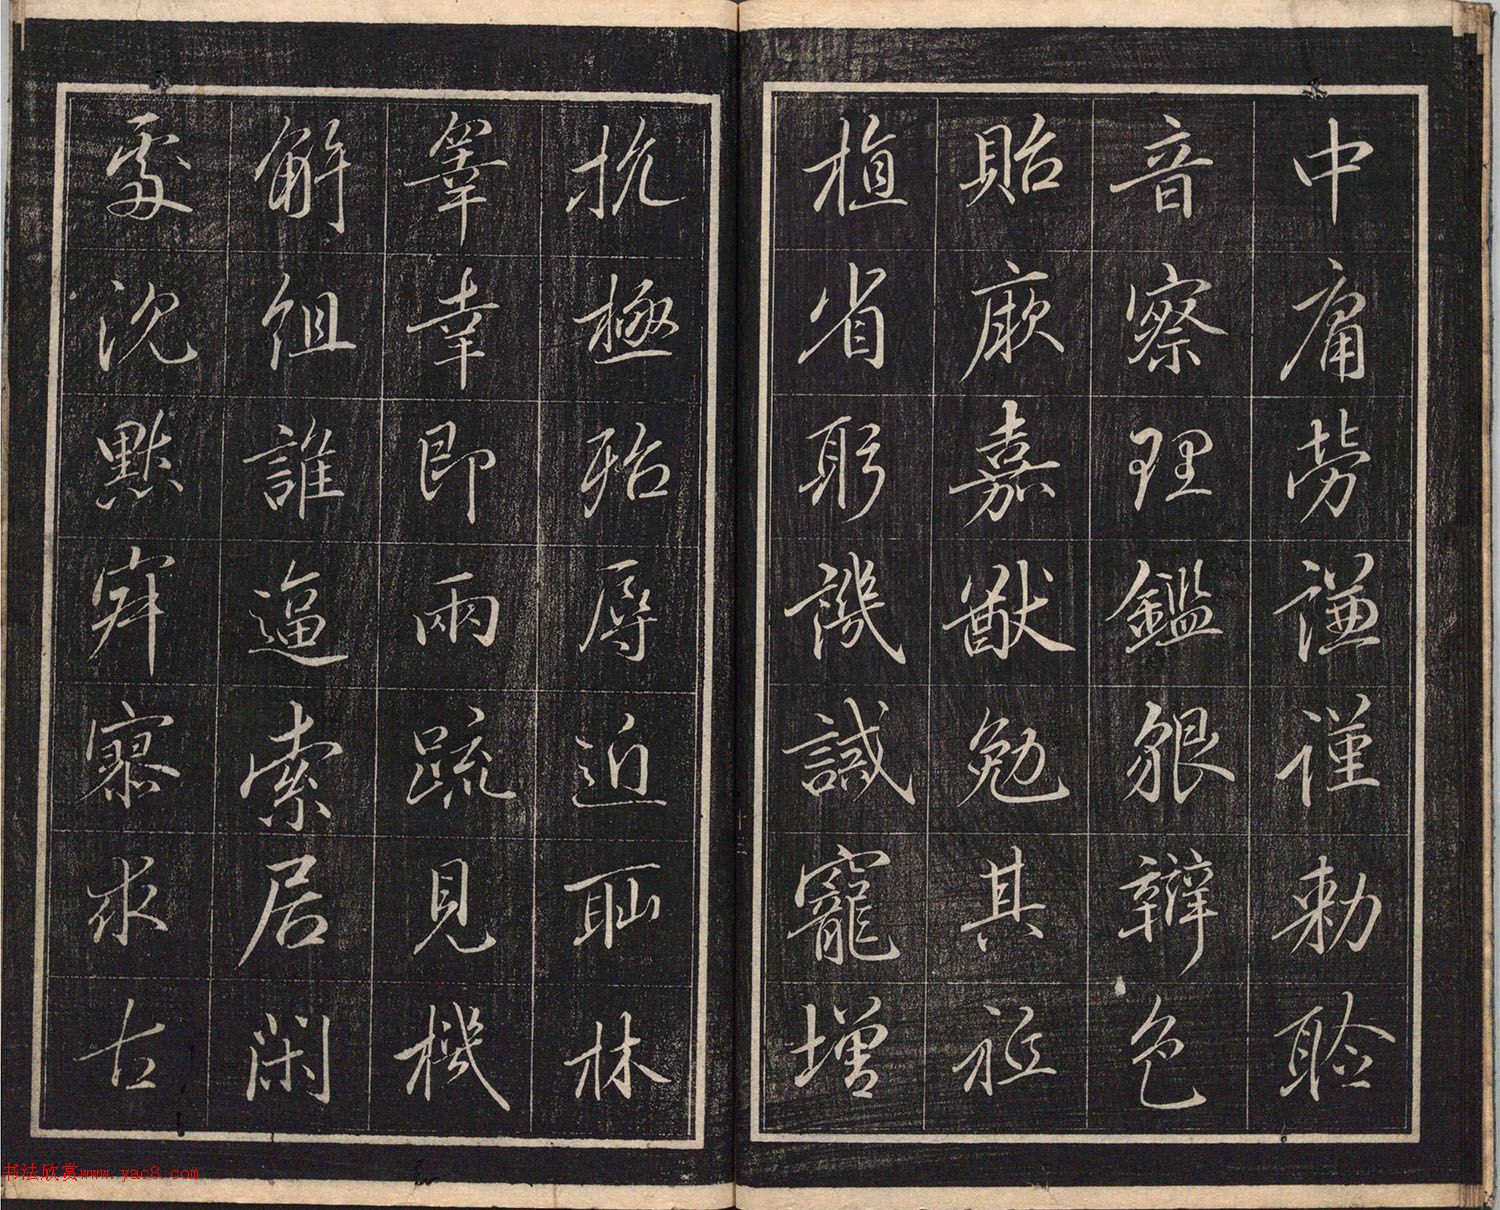 中庸勞謙謹勅聆
音察理鑑貌辯色
貽厥嘉猷勉其祗
植省躬譏誡寵增
抗極殆辱近恥林
睪幸即兩疏見機
解組誰逼索居閑
處沉默寂寥求古
书法欣赏www.yac8.com